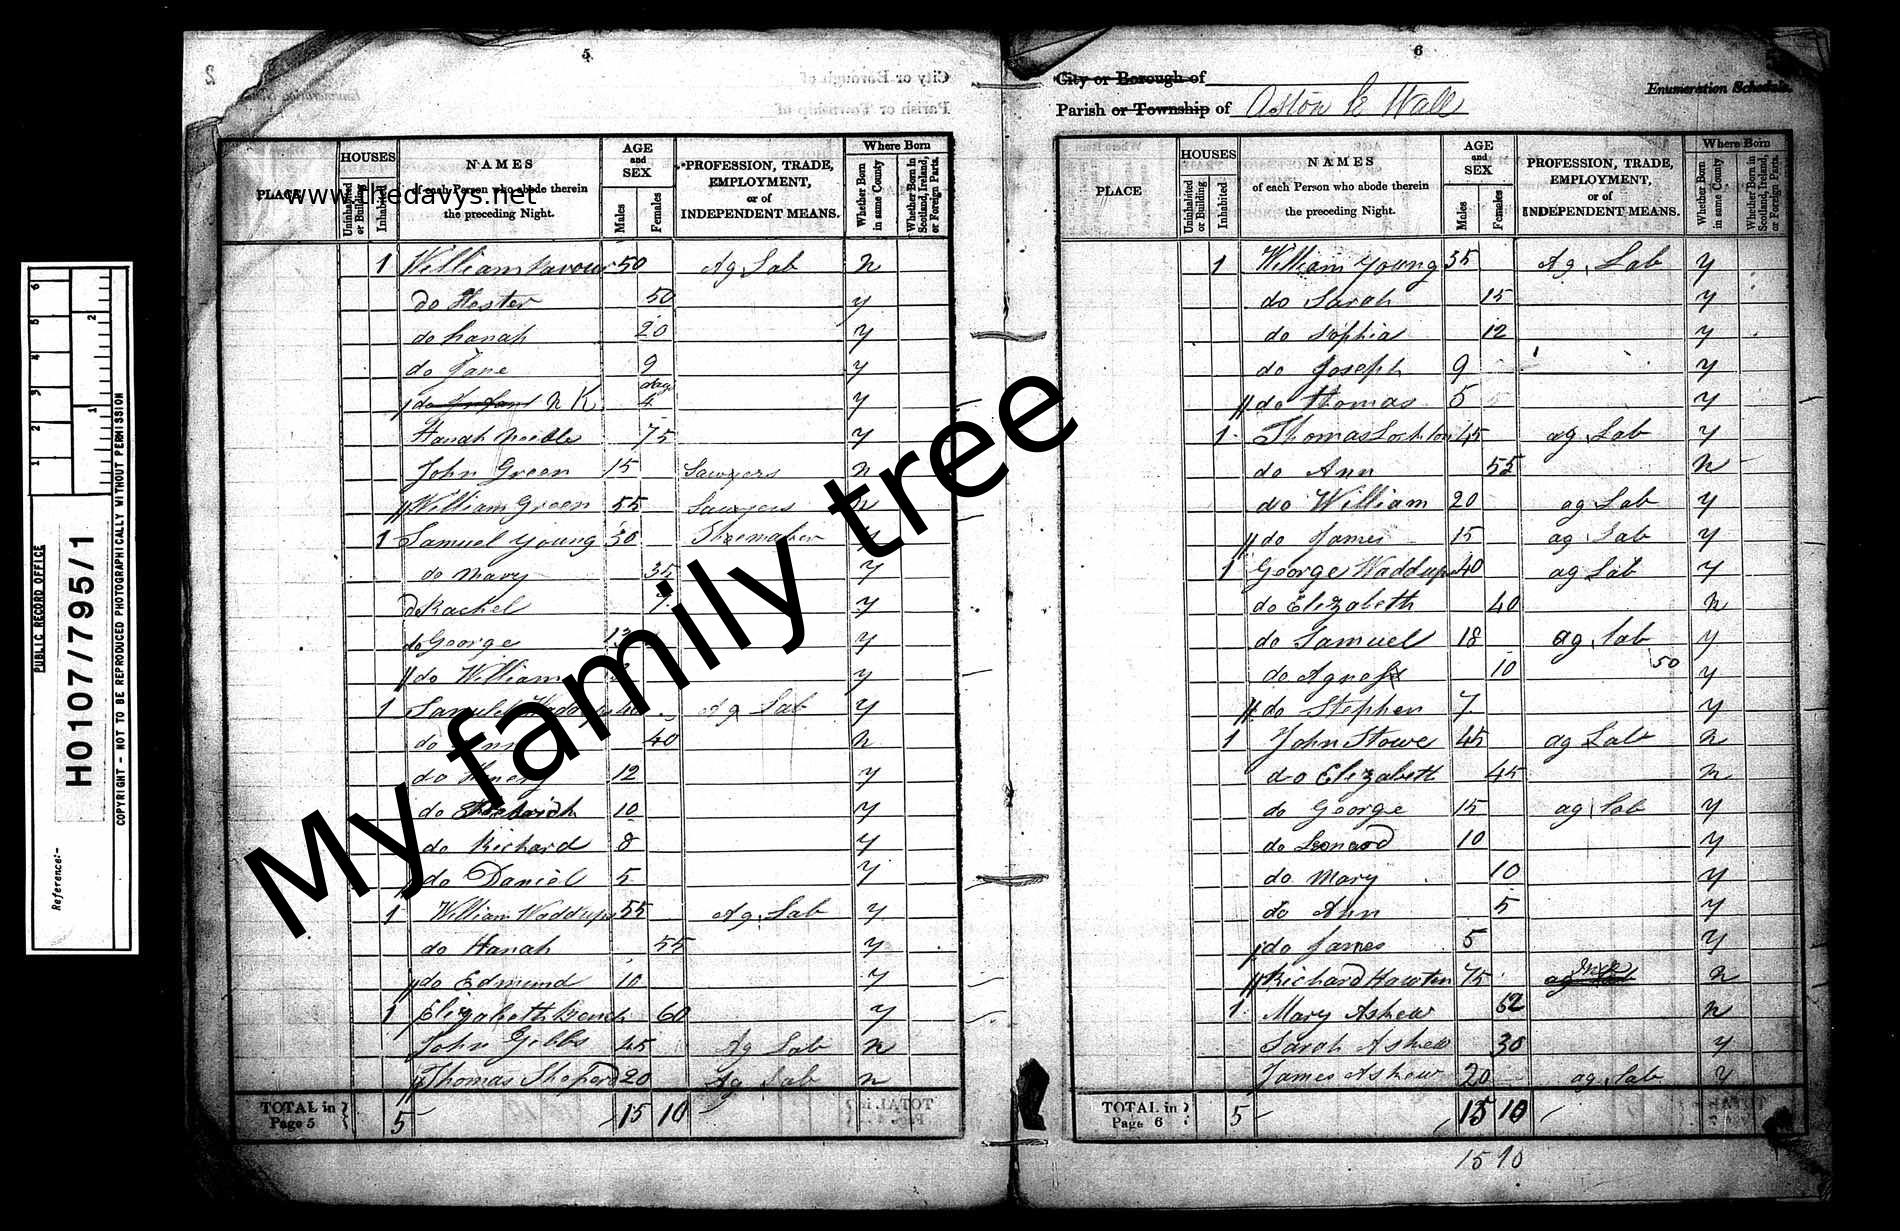 5
PLACE
HOUSES
Uninhabited or Building
Inhabited
NAMES
of each Person who abode therein
the preceding Night.
AGE and SEX
Males
Females
PROFESSION, TRADE, EMPLOYMENT, or of INDEPENDENT MEANS.
Where Born
Whether Born in same County
Whether Born in Scotland, Ireland, or Foreign Parts.
www.thedavys.net
1 William 50 Ag Lab n
do Hester 50 y
do Hanah 20 y
do Jane 9 y
do Infant n K days y
Hanah 75 y
John Green 15 Sawyers n
William Green 55 Sawyers n
1 Samuel Young 30 Shoemaker y
do Mary 35 y
do Rachel 7 y
do George y
do William y
1 Ag Lab y
do 40 n
do Henery 12 y
do 10 y
do Richard 8 y
do Daniel 5 y
1 William Waddups 55 Ag Lab y
do Hanah 55 y
do Edmund 10 y
1 Elizabeth 60 y
John Gibbs 45 Ag Lab n
Thomas Sheperd 20 Ag Lab n
TOTAL in Page 5
5 15 10
My family tree
6
City or Borough of
Parish or Township of Aston le Wall
Enumeration Schedule.
PLACE
HOUSES
Uninhabited or Building
Inhabited
NAMES
of each Person who abode therein
the preceding Night.
AGE and SEX
Males
Females
PROFESSION, TRADE, EMPLOYMENT, or of INDEPENDENT MEANS.
Where Born
Whether Born in same County
Whether Born in Scotland, Ireland, or Foreign Parts.
1 William Young 35 Ag. Lab y
do Sarah 15 y
do Sophia 12 y
do Joseph 9 y
do Thomas 5 y
1 Thomas 45 ag Lab y
do Ann 55 n
do William 20 ag Lab y
do James 15 ag Lab y
1 George Waddups 40 ag Lab y
do Elizabeth 40 n
do Samuel 18 ag lab y
50
do Agness 10 y
do Stephen 7 y
1 John Stowe 45 ag Lab n
do Elizabeth 45 n
do George 15 ag lab y
do Leonard 10 y
do Mary 10 y
do Ann 5 y
do James 5 y
Richard Hawten 75 ag Lab n
1 Mary Askew 62 n
Sarah Askew 30 y
James Askew 20 ag. lab y
TOTAL in Page 6
5 15 10
15 10
Reference:-
PUBLIC RECORD OFFICE
HO107/795/1
COPYRIGHT - NOT TO BE REPRODUCED PHOTOGRAPHICALLY WITHOUT PERMISSION
1 2 3 4 5 6
1 2